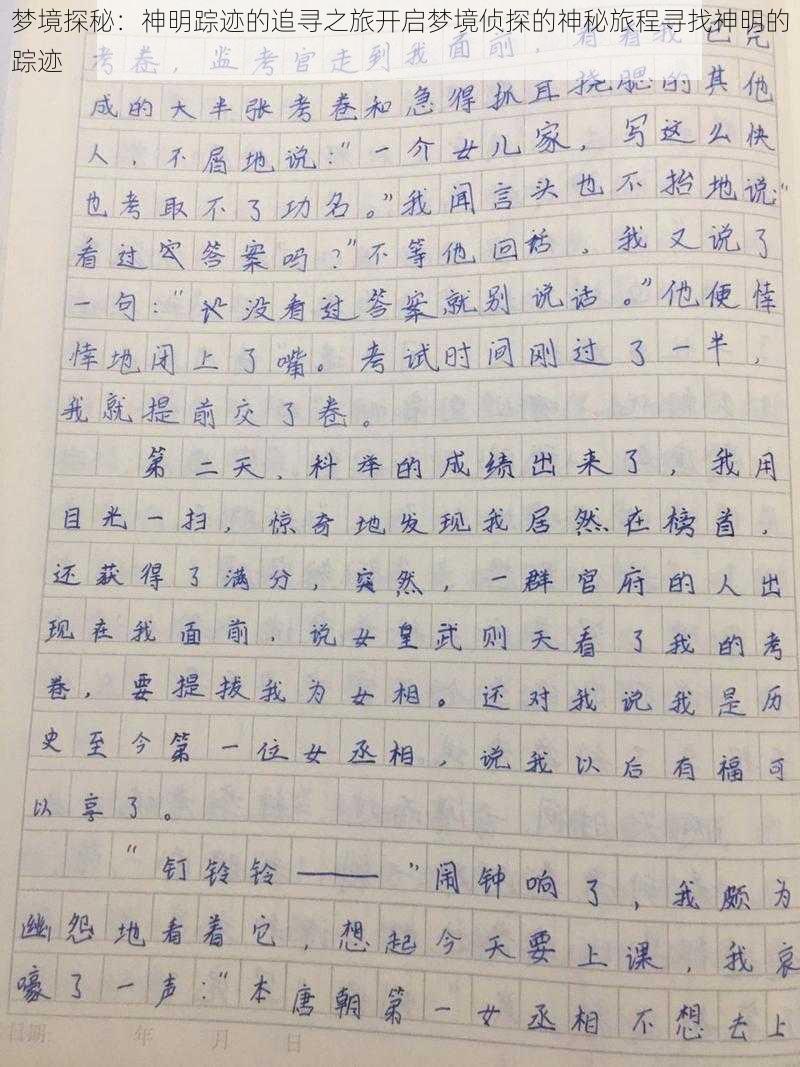 梦境探秘：神明踪迹的追寻之旅开启梦境侦探的神秘旅程寻找神明的
踪迹
考卷，监考官走到我面前，看着我已完
成的大半张考卷和急得抓耳挠腮的其他
人，不屑地说：“一介女儿家，写这么快
也考取不了功名。”我闻言头也不抬地说：“
看过答案吗？”不等他回话，我又说了
一句：“没看过答案就别说话。”他便悻
悻地闭上了嘴。考试时间刚过了一半，
我就提前交了卷。
第二天，科举的成绩出来了，我用
目光一扫，惊奇地发现我居然在榜首，
还获得了满分，突然，一群官府的人出
现在我面前，说女皇武则天看了我的考
卷，要提拔我为女相。还对我说我是历
史至今第一位女丞相，说我以后有福可
以享了。
“钉铃铃——”闹钟响了，我颇为
幽怨地看着它，想起今天要上课，我哀
嚎了一声：“本唐朝第一女丞相不想去上
日期： 年 月 日